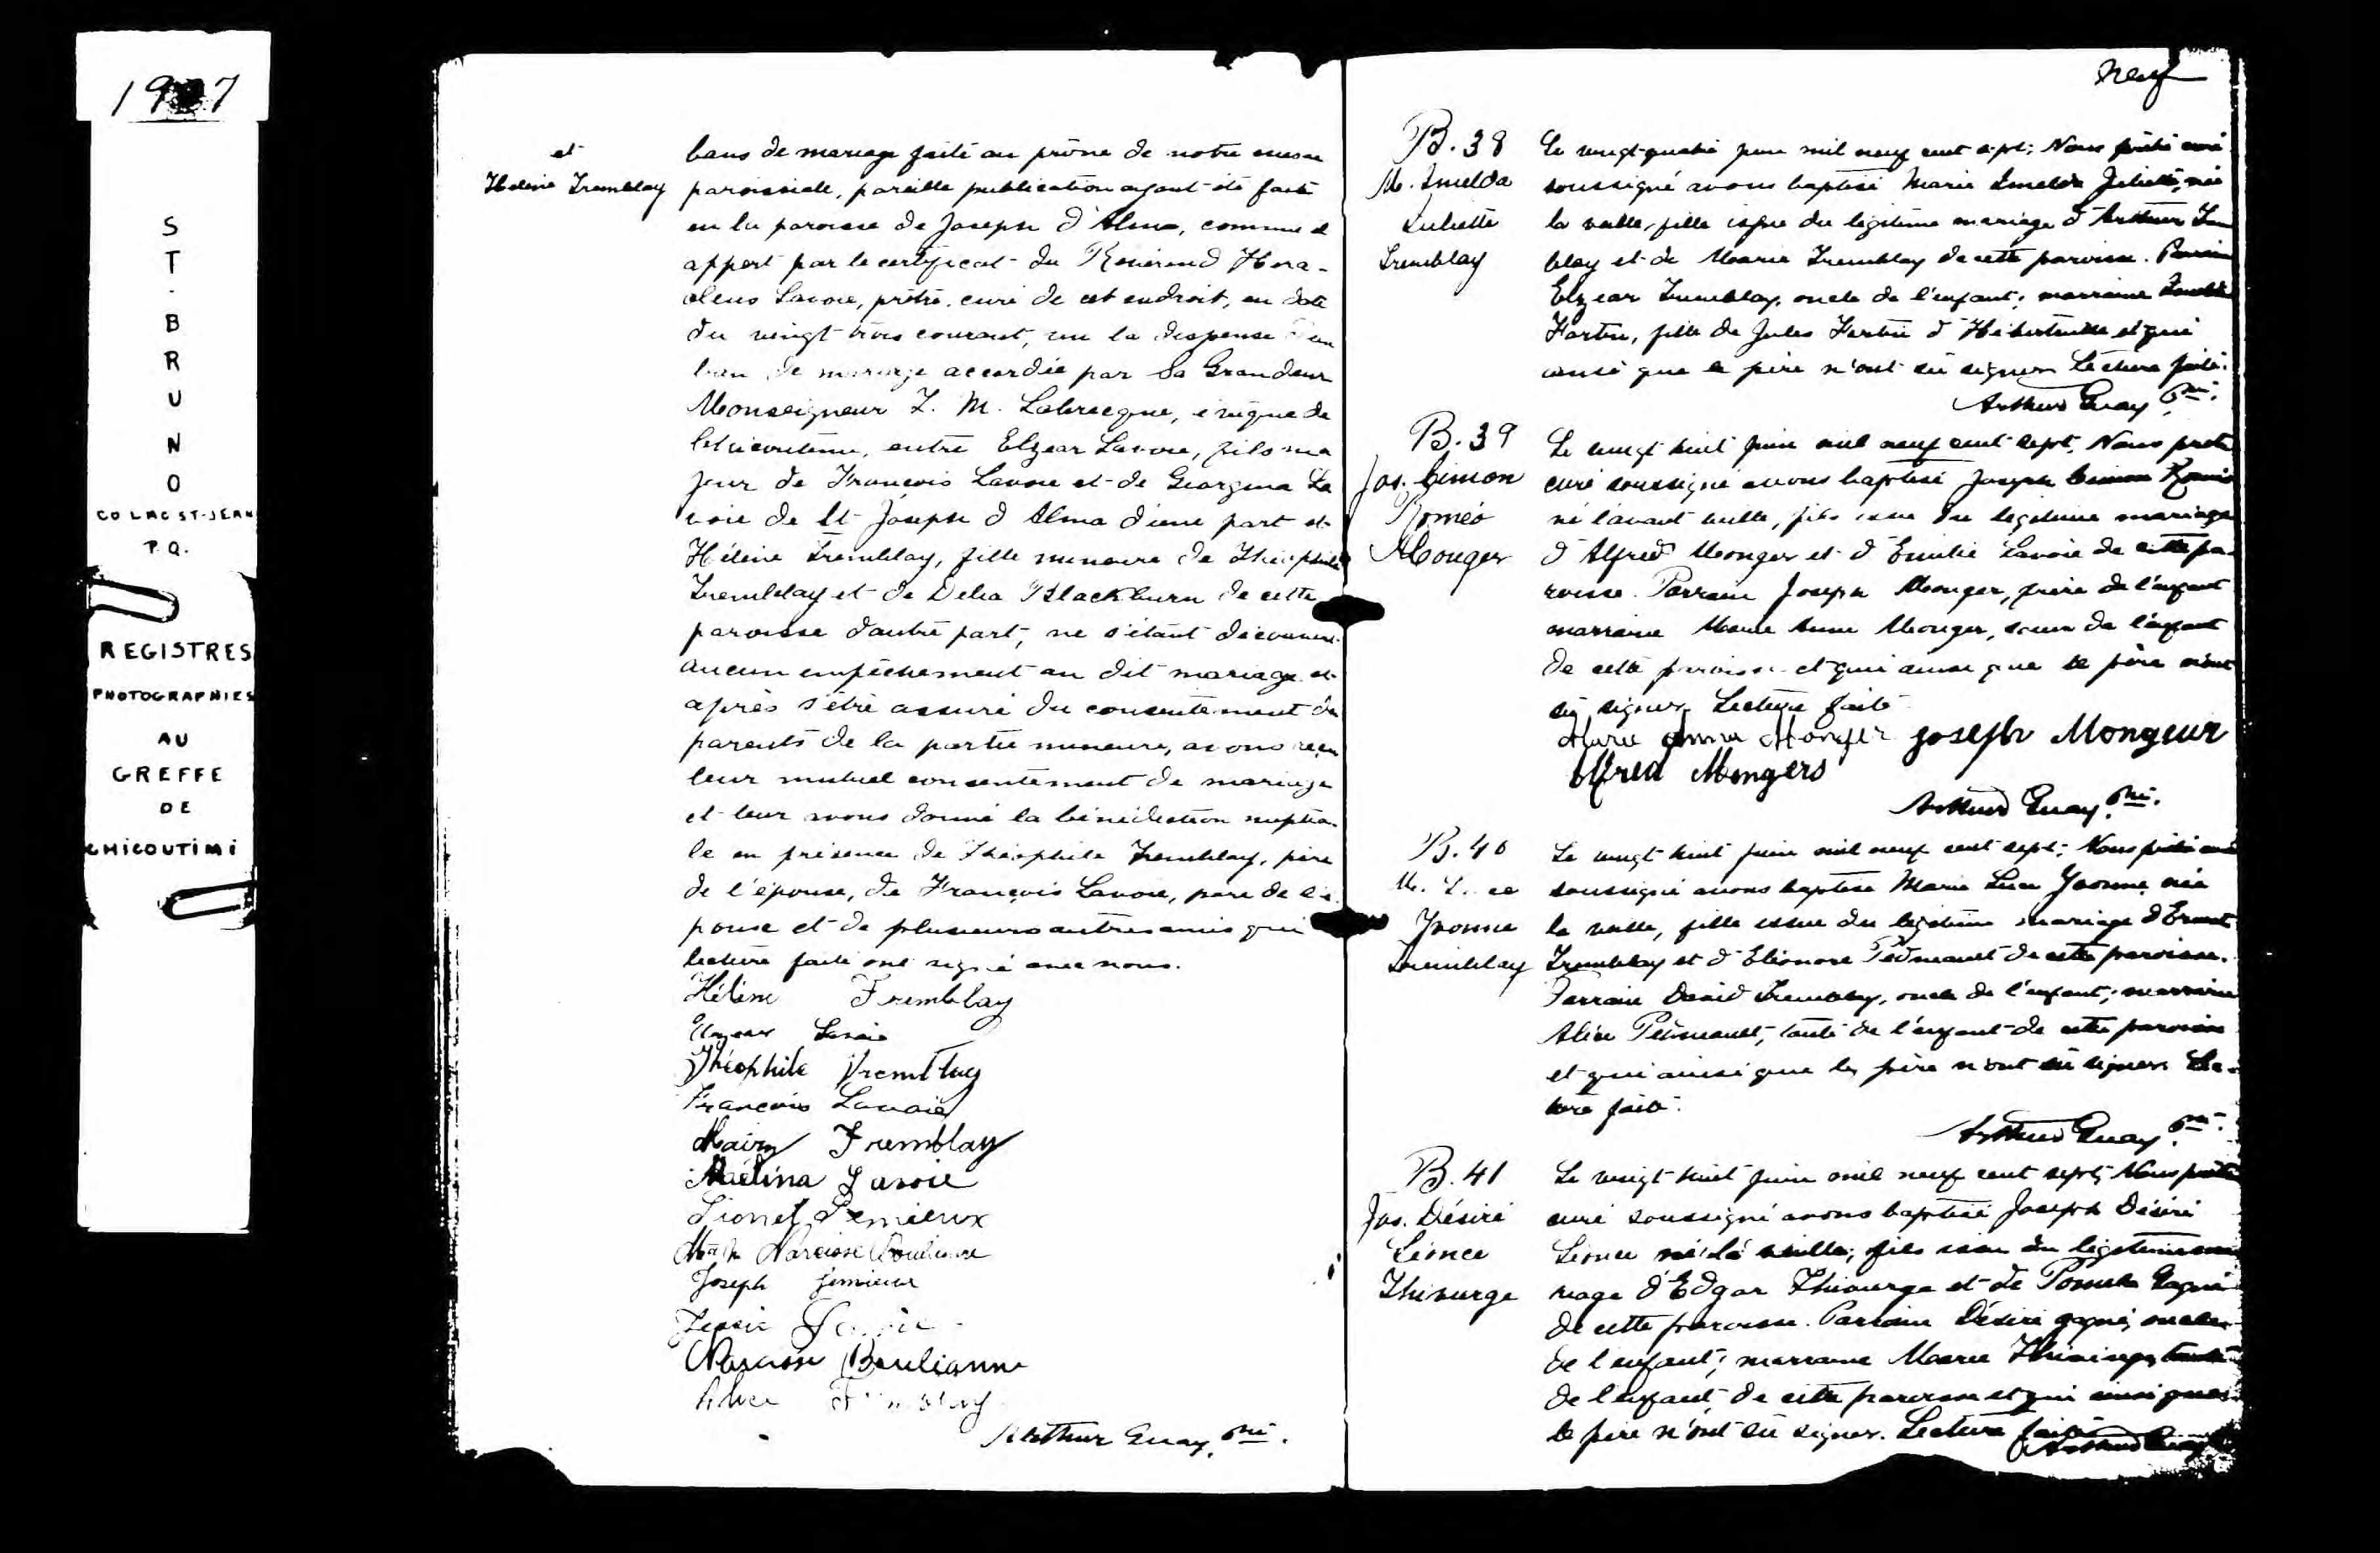 1907
S
T
.
B
R
U
N
O
CO LAC ST-JEAN
P.Q.
REGISTRES
PHOTOGRAPHIES
AU
GREFFE
DE
CHICOUTIMI
et
Hélène Tremblay
bans de mariage faite au prône de notre messe
paroissiale, pareille publication ayant été faite
en la paroisse de Joseph d'Alma, comme il
appert par le certificat du Révérend Héra-
clius Lavoie, prêtre, curé de cet endroit, en date
du vingt trois courant, vu la dispense d'un
ban de mariage accordée par Sa Grandeur
Monseigneur M. Labrecque, évêque de
Chicoutimi, entre Elzear Lavoie, fils ma
jeur de François Lavoie et de Georgina La
voie de St Joseph d'Alma d'une part et
Hélène Tremblay, fille mineure de Théophile
Tremblay et de Delia Blackburn de cette
paroisse d'autre part, ne s'étant découvert
aucun empêchement au dit mariage et
après s'être assuré du consentement des
parents de la partie mineure, avons reçu
leur mutuel consentement de mariage
et leur avons donné la bénédiction nuptia-
le en présence de Théophile Tremblay, père
de l'épouse, de François Lavoie, père de l'é
pouse et de plusieurs autres amis qui
lecture faite ont signé avec nous.
Hélène Tremblay
Elzear Lavoie
Théophile Tremblay
François Lavoie
Mairy Tremblay
Lavoie
Lionel Lemieux
Narcisse Boulianne
Joseph Lemieux
Narcisse Boulianne
Alice Tremblay
Arthur Guay, Ptre.
neuf
B. 38
M. Imelda
Juliette
Tremblay
Le vingt-quatre juin mil neuf cent sept; Nous prêtre curé
soussigné avons baptisé Marie Imelda Juliette, née
la veille, fille issue du légitime mariage d'Arthur Trem
blay et de Marie Tremblay de cette paroisse. Parrain
Elzear Tremblay, oncle de l'enfant; marraine
Fortin, fille de Jules Fortin d'Hébertville et qui
ainsi que le père n'ont su signer. Lecture faite.
Arthur Guay Ptre.
B. 39
Jos. Simon
Roméo
Monger
Le vingt huit juin mil neuf cent sept, Nous prêtre
curé soussigné avons baptisé Joseph Simon Roméo
né l'avant veille, fils issu du légitime mariage
d'Alfred Monger et d'Emilie Lavoie de cette pa-
roisse. Parrain Joseph Monger, frère de l'enfant
marraine Marie Anna Monger, sœur de l'enfant
de cette paroisse et qui ainsi que le père n'ont
su signer. Lecture faite
Marie Anna Monger Joseph Mongeur
Alfred Mongers
Arthur Guay, Ptre.
B. 40
Yvonne
Tremblay
Le vingt huit juin mil neuf cent sept; Nous prêtre curé
soussigné avons baptisé Marie Luce Yvonne, née
la veille, fille issue du légitime mariage d'Ernest
Tremblay et d'Eléonore Pedneault de cette paroisse.
Parrain David Tremblay, oncle de l'enfant; marraine
Alice Pedneault, tante de l'enfant de cette paroisse
et qui ainsi que le père n'ont su signer. Lec-
ture faite.
Arthur Guay, Ptre.
B. 41
Jos. Désiré
Léonce
Thivierge
Le vingt huit juin mil neuf cent sept; Nous prêtre
curé soussigné avons baptisé Joseph Désiré
Léonce né la veille, fils issu du légitime ma
riage d'Edgar Thivierge et de Gagné
de cette paroisse. Parrain Désiré Gagné, oncle
de l'enfant; marraine Marie Thivierge, tante
de l'enfant, de cette paroisse et qui ainsi que
le père n'ont su signer. Lecture faite
Arthur Guay